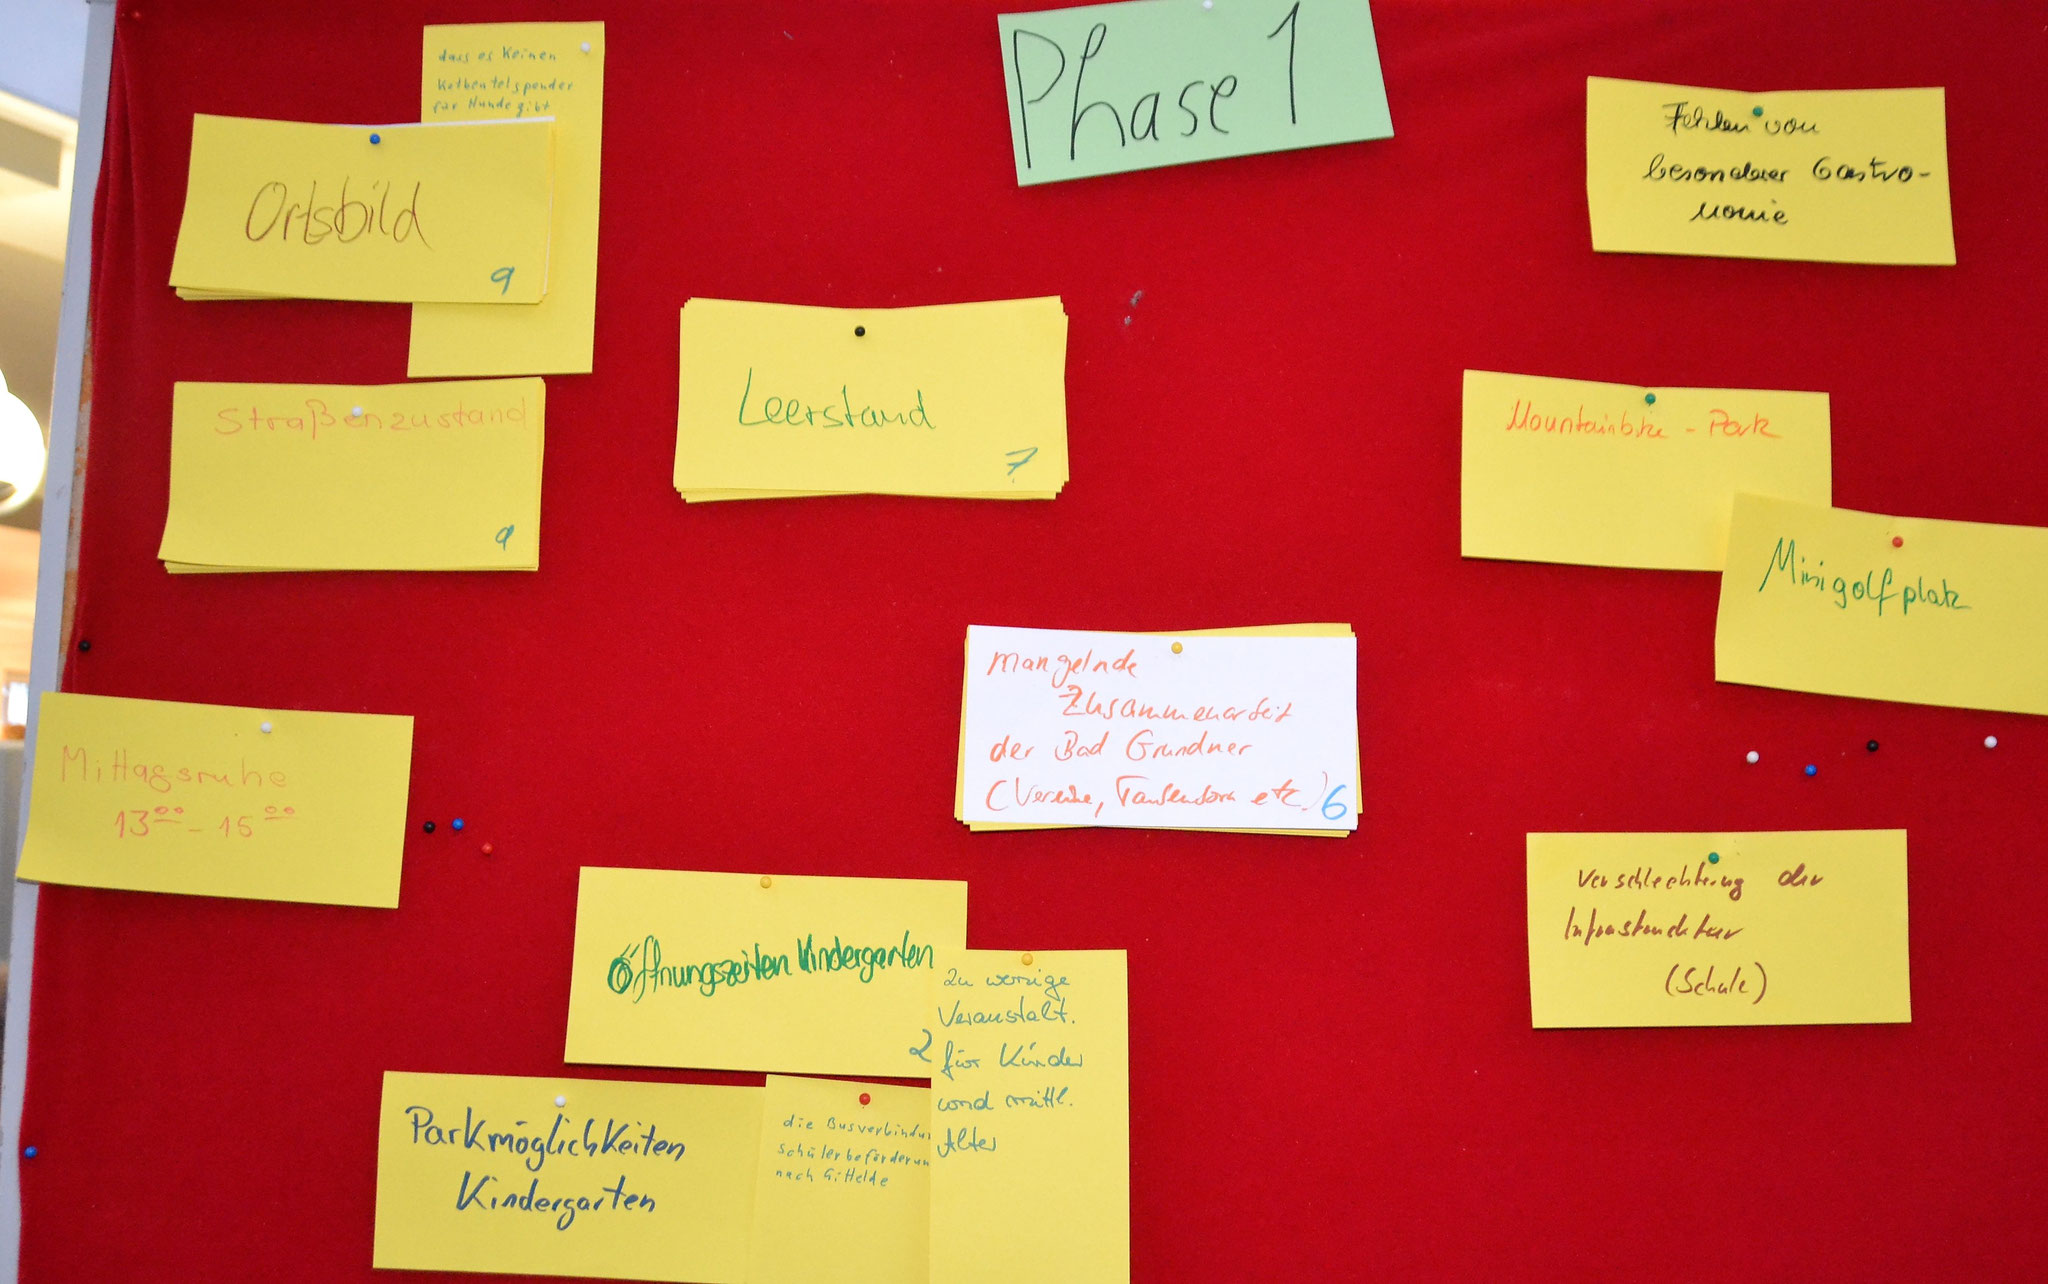 Phase 1
dass es keinen
Kotbeutelspender
für Hunde gibt
Ortsbild
9
Fehlen von
besonderer Gastro-
nomie
Straßenzustand
9
Leerstand
7
Mountainbike - Park
Minigolfplatz
mangelnde
Zusammenarbeit
der Bad Grundner
(Vereine, etc.)
6
Mittagsruhe
13⁰⁰ - 15⁰⁰
Verschlechterung der
Infrastruktur
(Schule)
Öffnungszeiten Kindergarten
2
zu wenige
Veranstalt.
für Kinder
und mittl.
Alter
Parkmöglichkeiten
Kindergarten
die Busverbindun
Schülerbeförderun
nach Gittelde